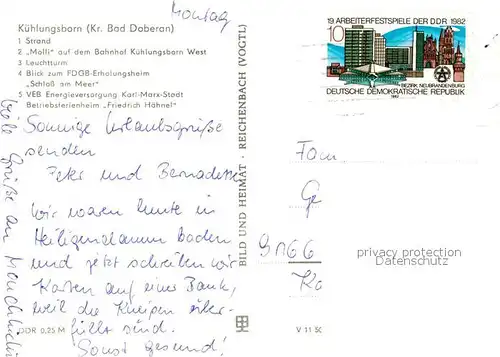 Montag
Kühlungsborn (Kr. Bad Doberan)
1 Strand
2 „Molli" auf dem Bahnhof Kühlungsborn West
3 Leuchtturm
4 Blick zum FDGB-Erholungsheim
„Schloß am Meer"
5 VEB Energieversorgung Karl-Marx-Stadt
Betriebsferienheim „Friedrich Hähnel"
Sonnige Urlaubsgrüße
senden
Peter und Bernadette
Wir waren heute in
Heiligendamm baden
und jetzt schreiben wir
Karten auf einer Bank,
weil die Kneipen über-
füllt sind.
Sonst gesund!
Viele Grüße an
DDR 0,25 M
BILD UND HEIMAT · REICHENBACH (VOGTL)
V 11 50
19. ARBEITERFESTSPIELE DER DDR 1982
10
BEZIRK NEUBRANDENBURG
DEUTSCHE DEMOKRATISCHE REPUBLIK
1982
Fam
Ge
9166
privacy protection
Datenschutz